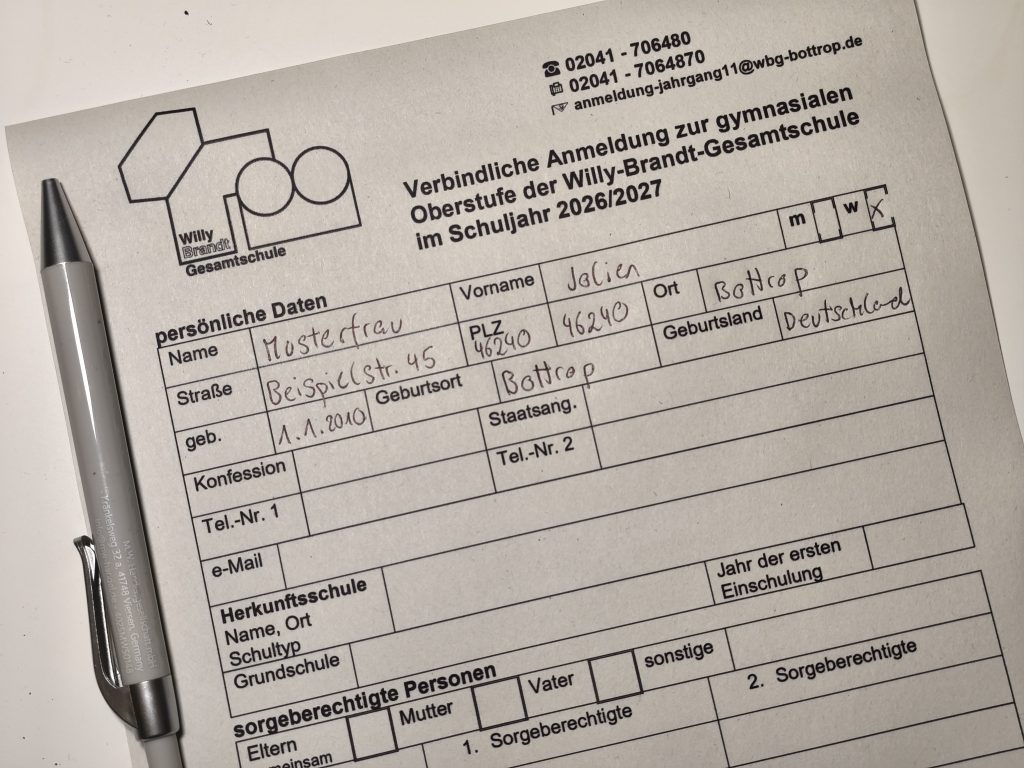 02041 - 706480
02041 - 7064870
anmeldung-jahrgang11@wbg-bottrop.de
Willy
Brandt
Gesamtschule
Verbindliche Anmeldung zur gymnasialen
Oberstufe der Willy-Brandt-Gesamtschule
im Schuljahr 2026/2027
persönliche Daten
Name Musterfrau Vorname Jolien m w x
Straße Beispielstr. 45 PLZ 46240 46240 Ort Bottrop
geb. 1.1.2010 Geburtsort Bottrop Geburtsland Deutschland
Konfession Staatsang.
Tel.-Nr. 1 Tel.-Nr. 2
e-Mail
Herkunftsschule
Name, Ort
Schultyp
Jahr der ersten
Einschulung
Grundschule
sorgeberechtigte Personen
Eltern
meinsam
Mutter Vater sonstige
1. Sorgeberechtigte 2. Sorgeberechtigte